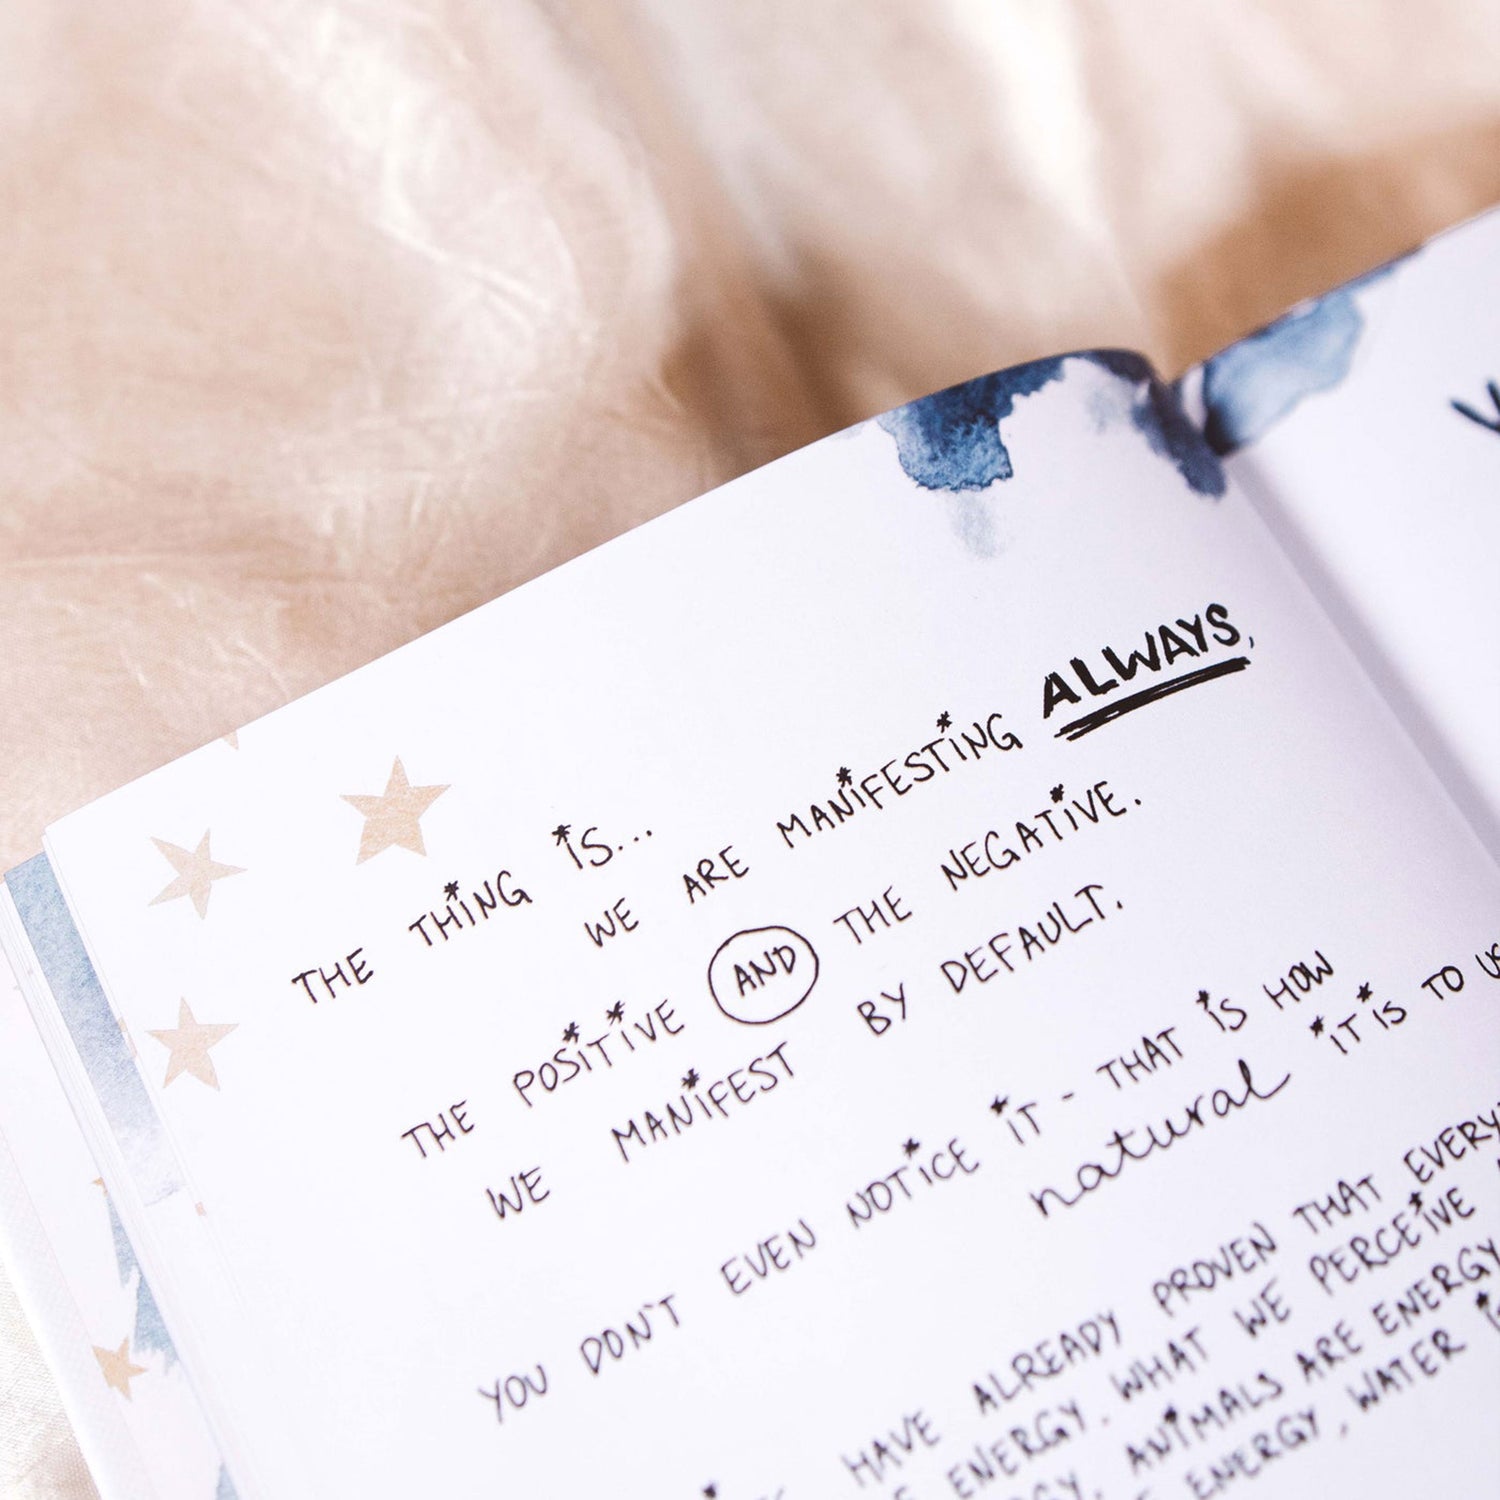 THE THING IS...
WE ARE MANIFESTING ALWAYS,
THE POSITIVE AND THE NEGATIVE.
WE MANIFEST BY DEFAULT.
YOU DON'T EVEN NOTICE IT - THAT IS HOW
natural IT IS TO US
HAVE ALREADY PROVEN THAT EVERY
ENERGY. WHAT WE PERCEIVE
ANIMALS ARE ENERGY
ENERGY, WATER